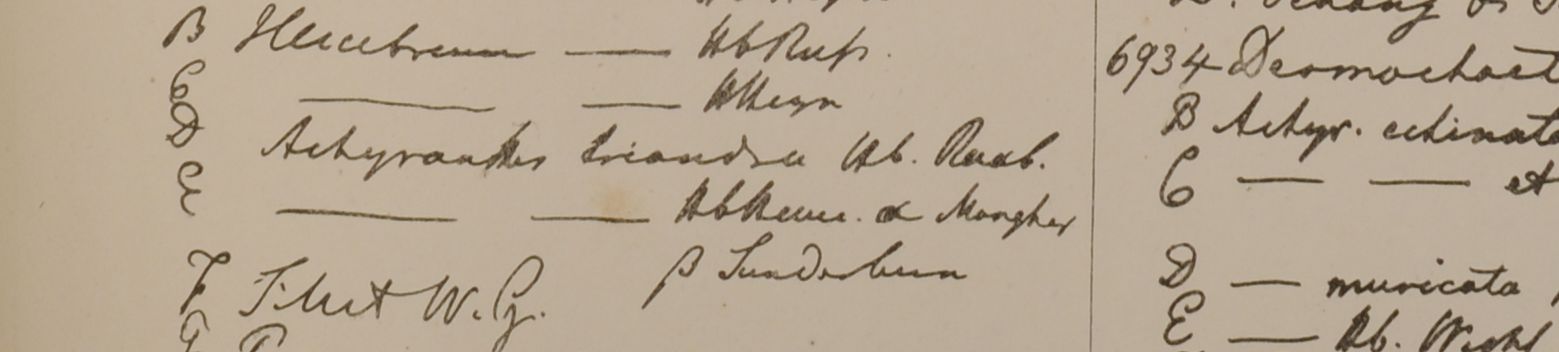 B Illecebrum — Hb Russ.
C — — HHeyn
D Achyranthes triandra Hb. Roxb.
E — — Hb Ham. α Mongher
β Sunderbun
F Silhet W. G.
G
6934 Desmochaet
B Achyr. echinata
C — — et
D — muricata
E — Hb. Wight